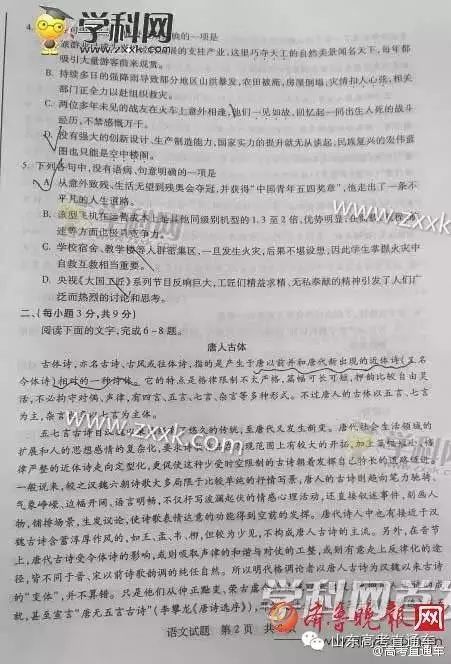 学科网
zxxk.com
4.
确的一项是
旅游业已成为
展的支柱产业，这里巧夺天工的自然美景闻名天下，每年都
吸引大量游客前来观赏。
B. 持续多日的强降雨导致部分地区山洪暴发，农田被淹，房屋倒塌，灾情扣人心弦，相关
部门正全力以赴组织救灾。
C. 两位多年未见的战友在火车上意外相逢，他们一见如故，回忆起一同出生入死的战斗
经历，不禁感慨万千。
D. 没有强大的创新设计、生产制造能力，国家实力的提升就无从谈起，民族复兴的宏伟蓝
图也只能是空中楼阁。
5. 下列各句中，没有语病、句意明确的一项是
A. 从意外致残、生活无望到残奥会夺冠，并获得“中国青年五四奖章”，他走出了一条不
平凡的人生道路。
B. 该型飞机在运营成本上是其他同级别机型的1.3至2倍，优势明显，
述等方面也极具竞争力。
C. 学校宿舍、教学楼等人群密集区，一旦发生火灾，后果不堪设想，因此学生掌握火灾中
自救互救相当重要。
D. 央视《大国工匠》系列节目反响巨大，工匠们精益求精、无私奉献的精神引发了人们广
泛而热烈的讨论和思考。
www.zxxk.com
二、(每小题3分，共9分)
阅读下面的文字，完成6～8题。
唐人古体
古体诗，亦名古诗、古风或往体诗，指的是产生于唐以前并和唐代新出现的近体诗(又名
今体诗)相对的一种诗体。它的特点是格律限制不太严格，篇幅可长可短，押韵比较自由灵
活，不必拘守对偶、声律，有四言、五言、七言、杂言等多种形式。不过唐人的古体以五言、七言
为主，杂言
以七言为主。
www.zxxk.com
五七言古诗自
悠久的传统，至唐代又发生新变。唐代社会生活领域的
扩展和人的思想感情的复杂化，要求诗
现范围上有较大的开拓，加上篇幅短小、格
律严整的近体诗走向定型化，更促使这种少受时空限制的古诗朝着发挥自己特长的道路迈进。
一般说来，较之汉魏六朝诗歌大多局限于比较单纯的抒情写景，唐人的古诗则趋向笔力驰骋、
气象峥嵘、边幅开阔、语言明畅，不仅抒写波澜起伏的情感心理活动，还直接叙述事件，刻画人
物，铺排场景，生发议论，使诗歌表情达意的功能得到空前的发挥。唐代诗人中也有接近于汉
魏古诗含蓄淳厚作风的，如王、孟、韦、柳，但较为少见，不构成唐人古诗的主流。另外，在音节
上，唐代古诗受今体诗的影响，或则吸取声律的和谐与对仗的工整，或则有意走上反律化的途
径，皆不同于晋、宋以前诗歌韵调的纯任自然。所以明代格调论者以唐人古诗为汉魏以来古诗
的“变体”，并不算错。只是他们从伸正黜变、荣古虐今的
就，甚至宣言“唐无五言古诗”(李攀龙《唐诗选序》)，
语文试题 第2页 共
学科网
齐鲁晚报网
www.qlwb.com.cn
山东高考直通车
@高考直通车